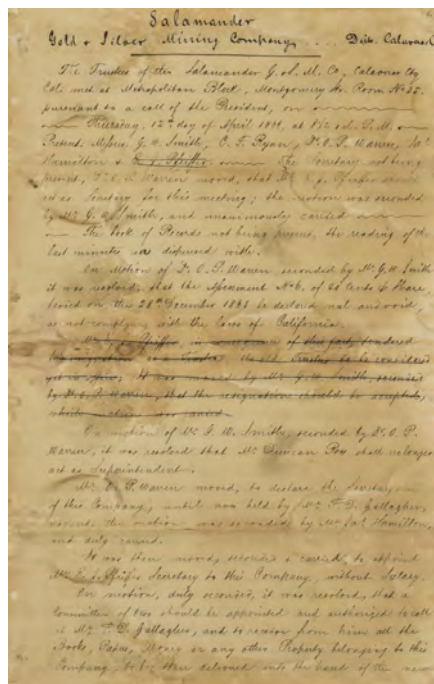 Salamander
Gold & Silver Mining Company, ... Dist. Calaveras C
The Trustees of the Salamander G. & S. M. Co, Calaveras Cty
Cal. met at Metropolitan Block, Montgomery Str. Room No
pursuant to a call of the President, on
Thursday, 12th day of April at P. M.
Present. Messrs. G. W. Smith, Ryan, Dr. O. P. Warren,
Hamilton & The Secretary not being
present, Dr. O. P. Warren moved, that Mr.
act as Secretary for this meeting; the motion was seconded
by Mr. G. W. Smith, and unanimously carried
The book of Records not being present, the reading of the
last minutes was dispensed with.
On Motion of Dr. O. P. Warren seconded by Mr. G. W. Smith
it was resolved, that the Assessment No 6, of Cents Share,
levied on the 28th December be declared nul and void,
as not complying with the laws of California.
in of this fact, tendered
his resignation as a Trustee to be considered
it was moved by Mr. G. W. Smith, seconded
by Dr. O. P. Warren, that the resignation should be accepted,
which motion was carried.
On motion of Mr. G. W. Smith, seconded by Dr. O. P.
Warren, it was resolved that Mr. Duncan shall no longer
act as Superintendent.
Mr. O. P. Warren moved, to declare the
of this Company, until now held by Mr. F. D. Gallagher,
vacant, the motion was seconded by Mr. Hamilton,
and duly carried.
It was then moved, seconded & carried, to appoint
Mr. Secretary to this Company, without Salary.
On motion, duly seconded, it was resolved, that a
Committee of two should be appointed and authorized to call
Mr. F. D. Gallagher, and to receive from him all the
Books, Papers, Money or any other Property belonging to this
Company, to be then delivered into the hand of the new